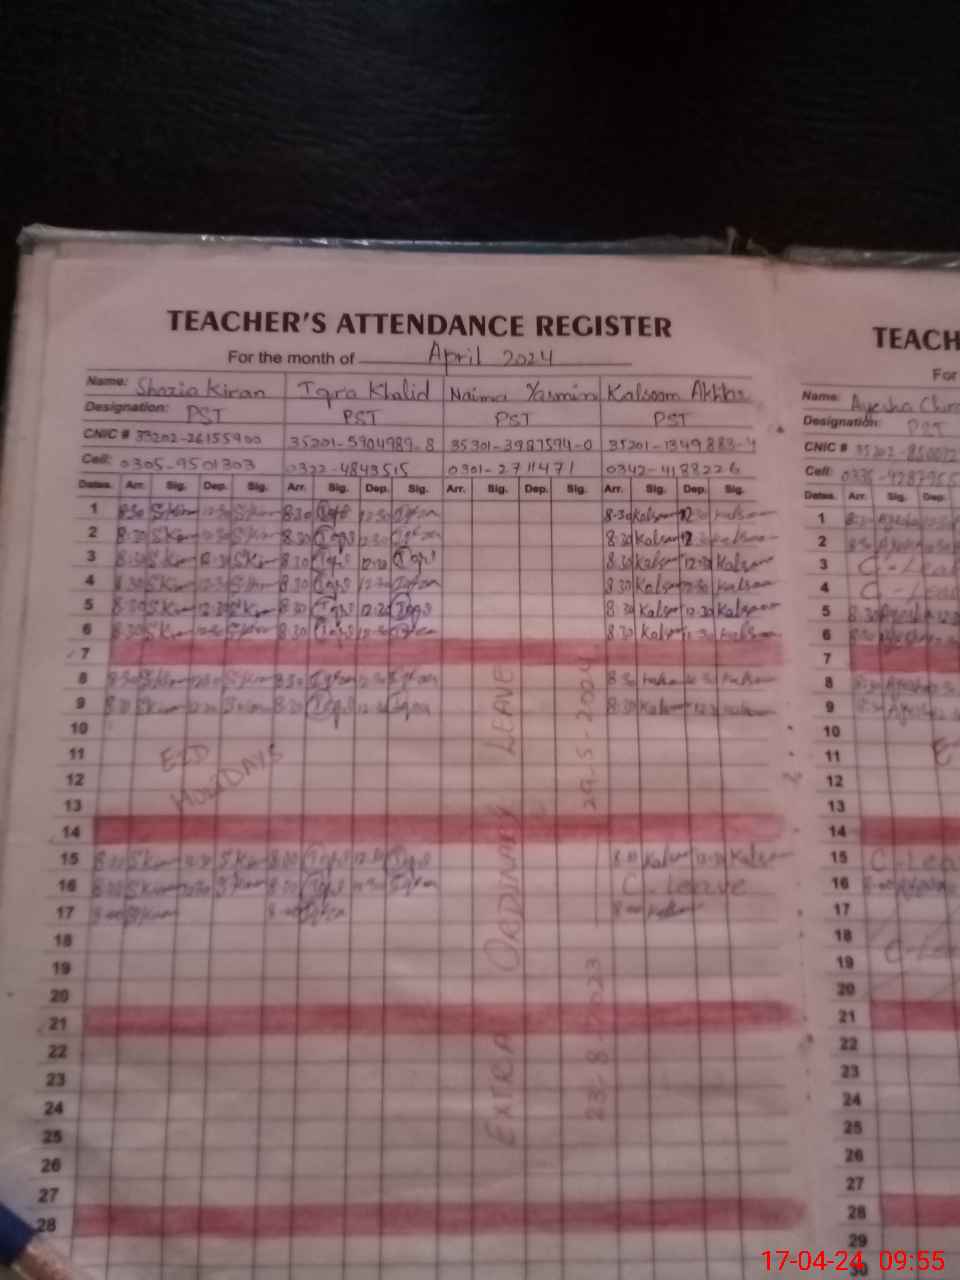 TEACHER'S ATTENDANCE REGISTER
For the month of April 2024
Name: Shazia Kiran Iqra Khalid Naima Yasmin Kalsoom Akhtar
Designation: PST PST PST PST
CNIC # 35201-5904989-8 35301-3987594-0
Cell: 0305-9501303 0322-4843515 0301-2711471 0342-4188226
Dates. Arr. Sig. Dep. Sig. Arr. Sig. Dep. Sig. Arr. Sig. Dep. Sig. Arr. Sig. Dep. Sig.
1 8:30 S.Kiran 12:30 S.Kiran 8:30 Iqra 12:30 8:30 Kalsoom 12:30 Kalsoom
2 8:30 S.Kiran 12:30 S.Kiran 8:30 Iqra 12:30 8:30 Kalsoom 12:30 Kalsoom
3 8:30 S.Kiran 12:30 S.Kiran 8:30 Iqra 12:30 Iqra 8:30 Kalsoom 12:30 Kalsoom
4 8:30 S.Kiran 12:30 S.Kiran 8:30 Iqra 12:30 8:30 Kalsoom 12:30 Kalsoom
5 8:30 S.Kiran 12:30 S.Kiran 8:30 Iqra 12:30 Iqra 8:30 Kalsoom 12:30 Kalsoom
6 8:30 S.Kiran 12:30 S.Kiran 8:30 Iqra 12:30 8:30 Kalsoom 12:30 Kalsoom
7
8 8:30 S.Kiran 12:30 S.Kiran 8:30 12:30 8:30 12:30
9 8:30 S.Kiran 12:30 S.Kiran 8:30 Iqra 12:30 8:30 Kalsoom 12:30
10
11 EID
12 HOLIDAYS
13
14
15 8:00 S.Kiran 12:30 S.Kiran 8:00 Iqra 12:30 Iqra 8:00 Kalsoom 12:30 Kalsoom
16 8:00 S.Kiran 12:30 S.Kiran 8:00 Iqra 12:30 C.Leave
17 8:00 S.Kiran 8:00 8:00 Kalsoom
18
19
20
21
22
23
24
25
26
27
28
EXTRA ORDINARY LEAVE
23-8-2023 29-5-2024
TEACH
For
Name: Ayesha
Designation: PST
CNIC #
Cell:
Dates. Arr. Sig. Dep.
1
2
3 C-Lea
4 C-Lea
5 8:30 Ayesha 12:30
6
7
8
9
10
11 E
12
13
14
15 C-Lea
16 8:00 Ayesha
17
18
19 C-Lea
20
21
22
23
24
25
26
27
28
29
30
17-04-24 09:55